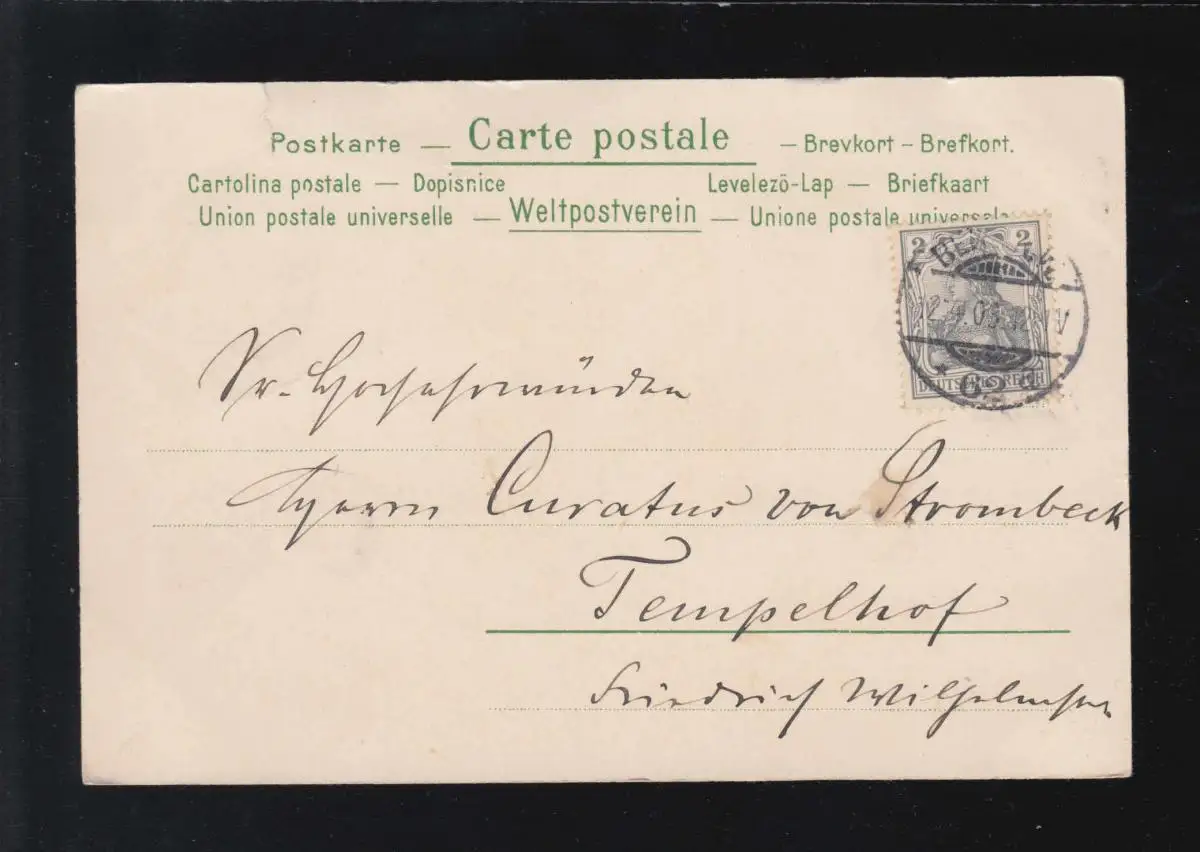 Postkarte — Carte postale — Brevkort – Brefkort.
Cartolina postale — Dopisnice Levelezö-Lap — Briefkaart
Union postale universelle — Weltpostverein — Unione postale universale
2 2
BERLIN
DEUTSCHES REICH
Sr. Hochehrwürden
Herrn Curatus von Strombeck
Tempelhof
Friedrich Wilhelmstr